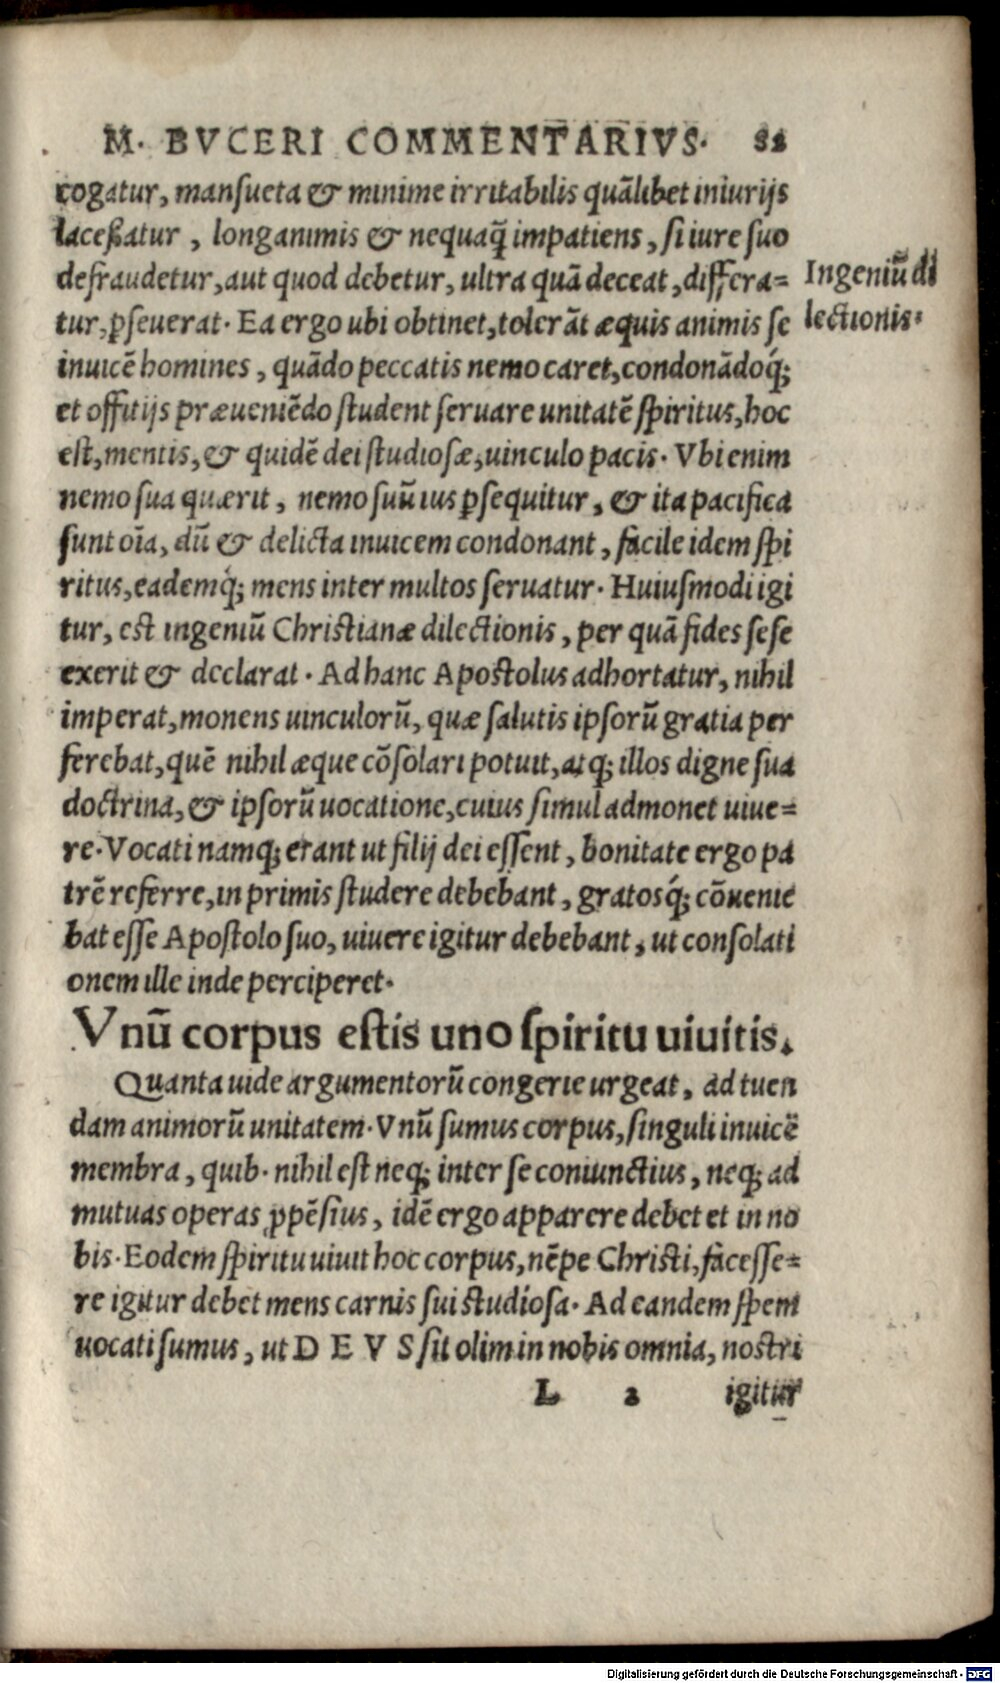 M. BVCERI COMMENTARIVS. 82
rogatur, mansueta & minime irritabilis quãlibet iniurijs
laceßatur, longanimis & nequaq̃ impatiens, si iure suo
defraudetur, aut quod debetur, ultra quã deceat, differa=
tur, ꝑseuerat. Ea ergo ubi obtinet, tolerãt æquis animis se
inuicẽ homines, quãdo peccatis nemo caret, condonãdoq́;
et offitijs præueniẽdo student seruare unitatẽ spiritus, hoc
est, mentis, & quidẽ dei studiosæ, uinculo pacis. Vbi enim
nemo sua quærit, nemo suũ ius ꝑsequitur, & ita pacifica
sunt oĩa, dũ & delicta inuicem condonant, facile idem spi
ritus, eademq́; mens inter multos seruatur. Huiusmodi igi
tur, est ingeniũ Christianæ dilectionis, per quã fides sese
exerit & declarat. Ad hanc Apostolus adhortatur, nihil
imperat, monens uinculorũ, quæ salutis ipsorũ gratia per
ferebat, quẽ nihil æque cõsolari potuit, atq; illos digne sua
doctrina, & ipsorũ uocatione, cuius simul admonet uiue=
re. Vocati namq; erant ut filij dei essent, bonitate ergo pa
trẽ referre, in primis studere debebant, gratosq́; cõuenie
bat esse Apostolo suo, uiuere igitur debebant, ut consolati
onem ille inde perciperet.
Ingeniũ di
lectionis.
Vnũ corpus estis uno spiritu uiuitis.
Quanta uide argumentorũ congerie urgeat, ad tuen
dam animorũ unitatem. Vnũ sumus corpus, singuli inuicẽ
membra, quib. nihil est neq; inter se coniunctius, neq; ad
mutuas operas ꝓpẽsius, idẽ ergo apparere debet et in no
bis. Eodem spiritu uiuit hoc corpus, nẽpe Christi, facesse=
re igitur debet mens carnis sui studiosa. Ad eandem spem
uocati sumus, ut D E V S sit olim in nobis omnia, nostri
L 2 igitur
Digitalisierung gefördert durch die Deutsche Forschungsgemeinschaft - DFG